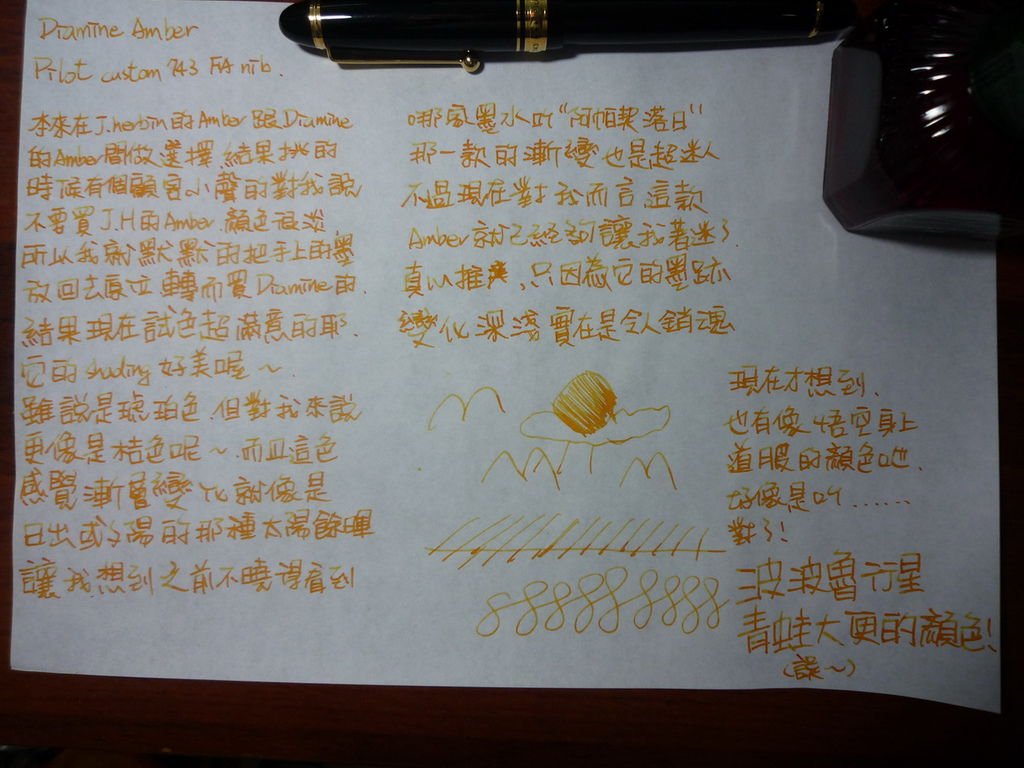 Diamine Amber
Pilot custom 743 FA nib.
本來在J.herbin的Amber跟Diamine
的Amber間做選擇 結果挑的
時候有個顧客小聲的對我說
不要買J.H的Amber.顏色很淡
所以我就默默的把手上的墨
放回去原位 轉而買Diamine的.
結果現在試色超滿意的耶.
它的shading好美喔～.
雖說是琥珀色.但對我來說
更像是桔色呢～.而且這色
感覺漸層變化就像是
日出或夕陽的那種太陽餘暉
讓我想到之前不曉得看到
哪家墨水叫"阿帕契落日"
那一款的漸變也是超迷人
不過現在對我而言這款
Amber就已經夠讓我著迷了.
真心推薦,只因為它的墨跡
變化深淺實在是令人銷魂
現在才想到.
也有像悟空身上
道服的顏色吔.
好像是叫……
對了!
波波魯行星
青蛙大便的顏色!
(誤～)